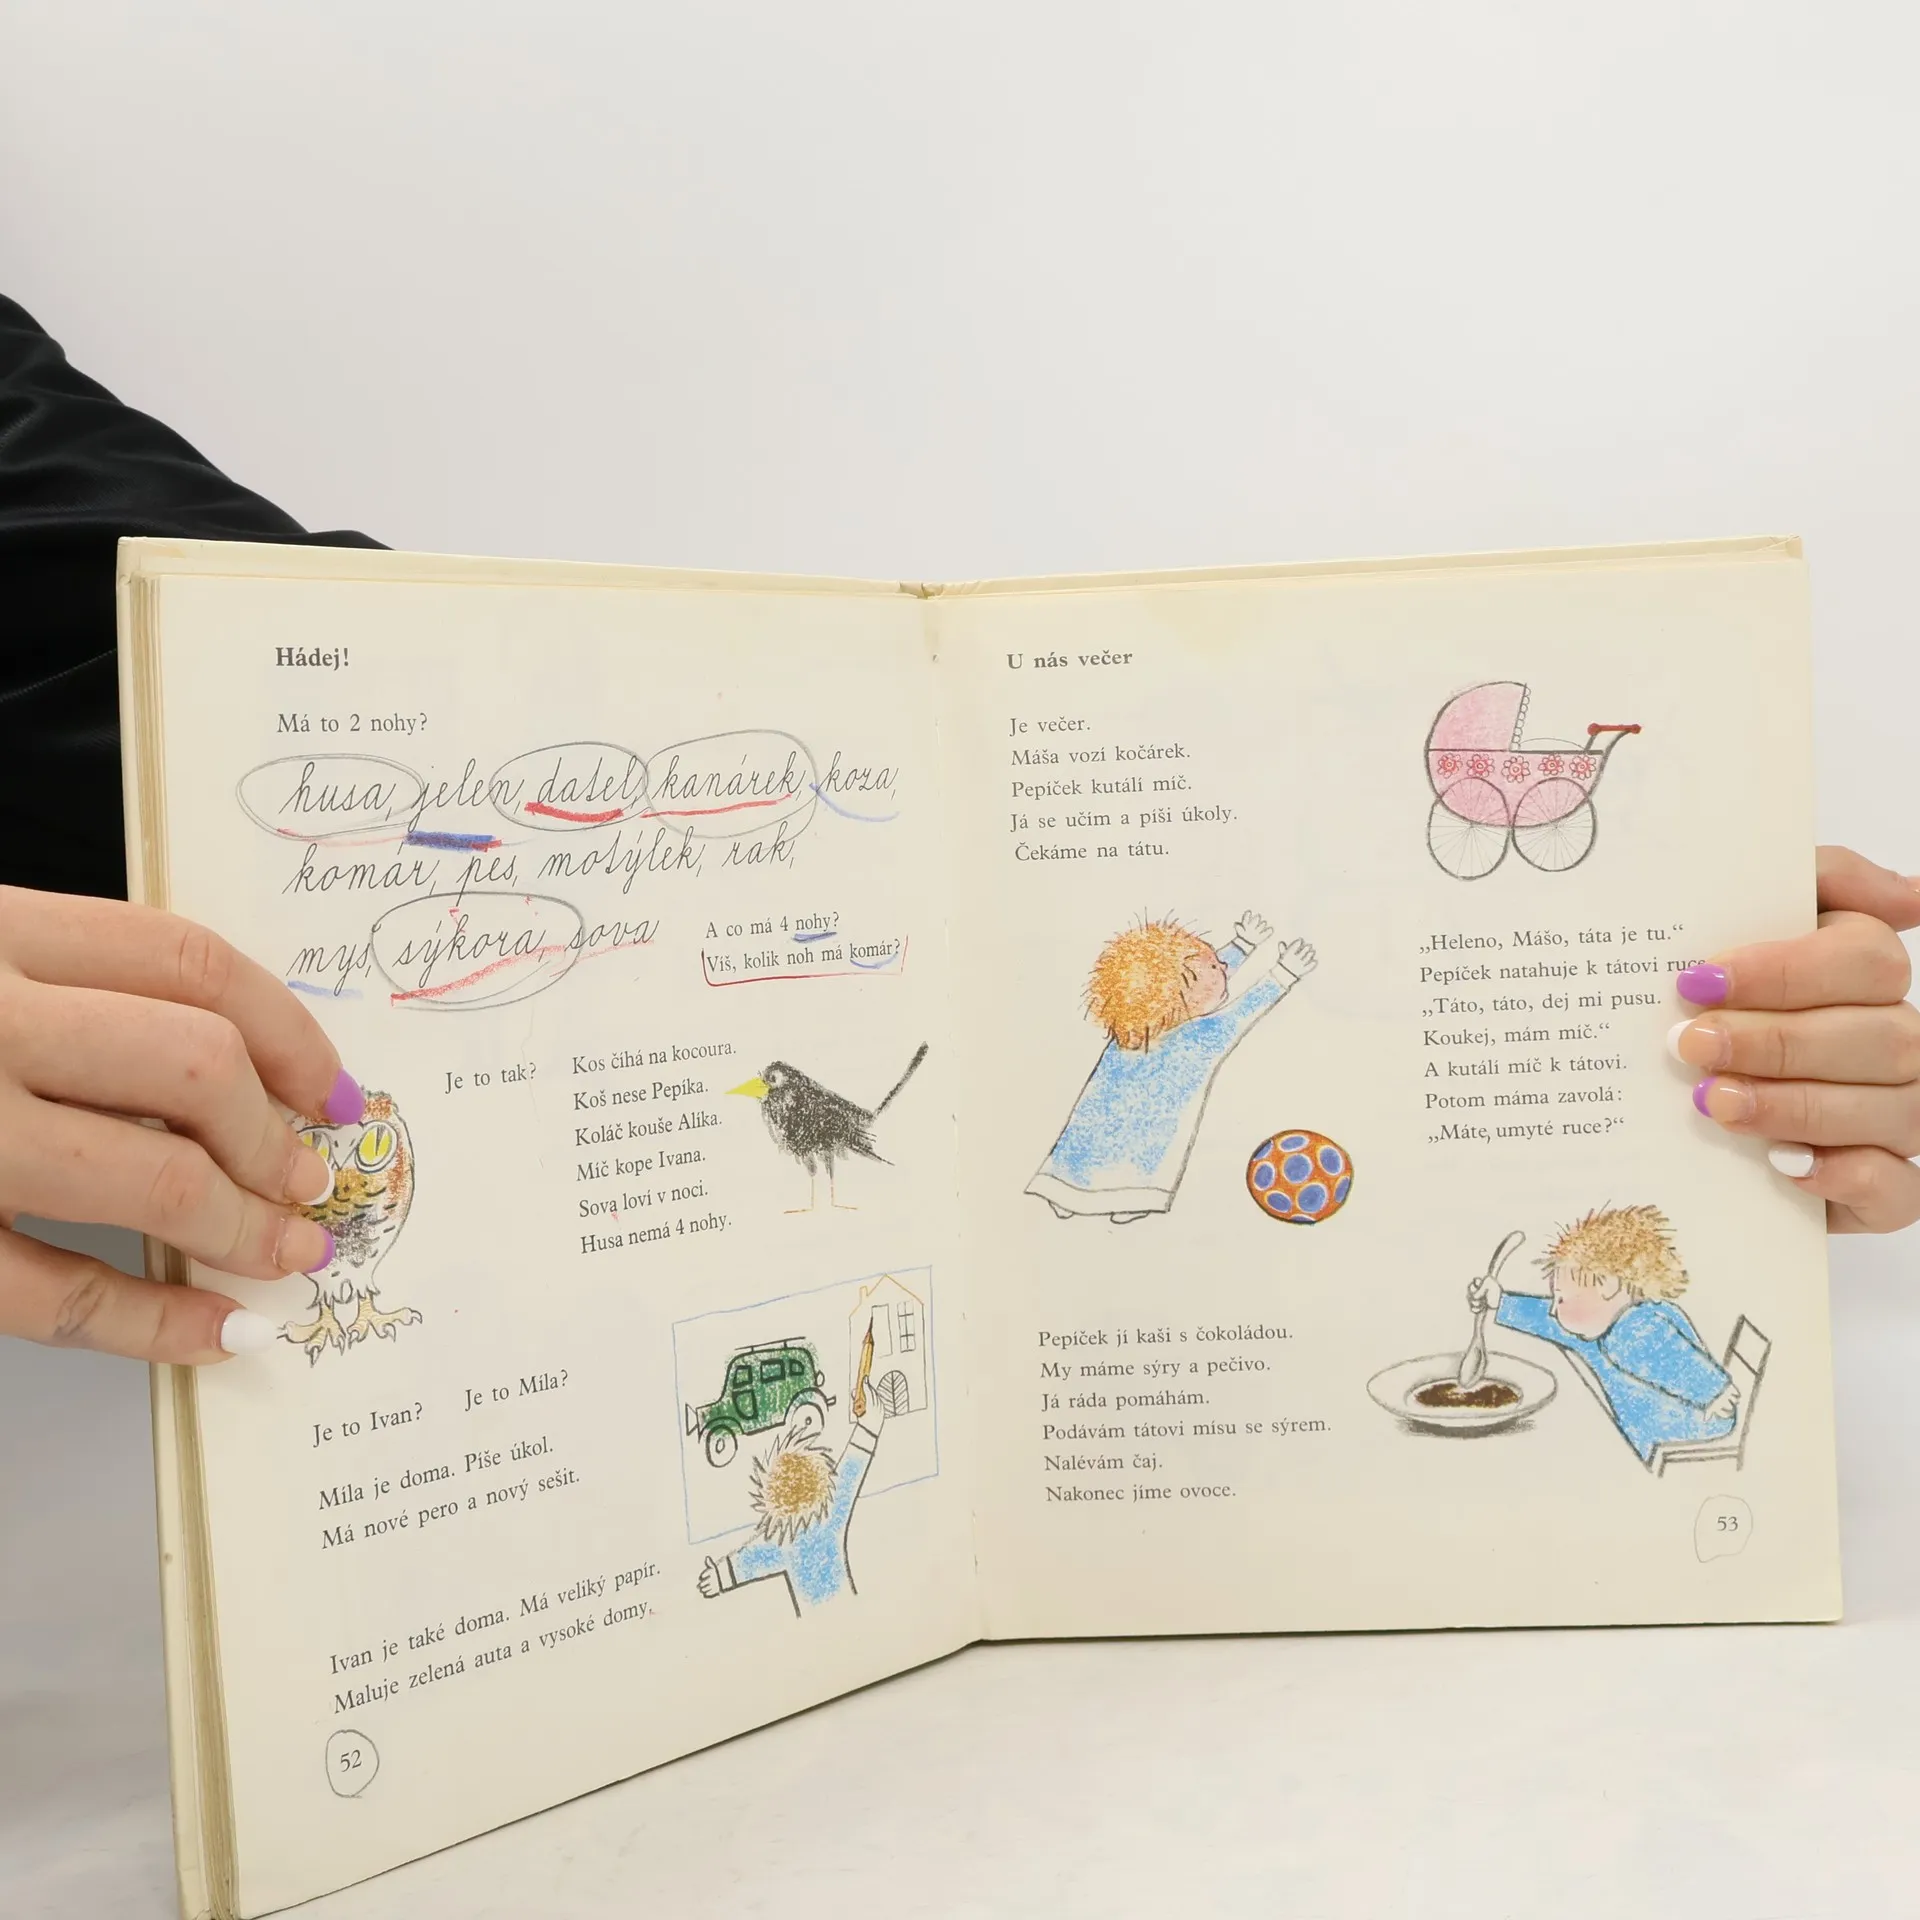 Hádej!
Má to 2 nohy?
husa, jelen, datel, kanárek, koza,
komár, pes, motýlek, rak,
mys, sýkora, sova
A co má 4 nohy?
Víš, kolik noh má komár?
Je to tak?
Kos číhá na kocoura.
Koš nese Pepíka.
Koláč kouše Alíka.
Míč kope Ivana.
Sova loví v noci.
Husa nemá 4 nohy.
Je to Ivan? Je to Míla?
Míla je doma. Píše úkol.
Má nové pero a nový sešit.
Ivan je také doma. Má veliký papír.
Maluje zelená auta a vysoké domy.
52
U nás večer
Je večer.
Máša vozí kočárek.
Pepíček kutálí míč.
Já se učím a píši úkoly.
Čekáme na tátu.
„Heleno, Mášo, táta je tu.“
Pepíček natahuje k tátovi ruce
„Táto, táto, dej mi pusu.
Koukej, mám míč.“
A kutálí míč k tátovi.
Potom máma zavolá:
„Máte umyté ruce?“
Pepíček jí kaši s čokoládou.
My máme sýry a pečivo.
Já ráda pomáhám.
Podávám tátovi mísu se sýrem.
Nalévám čaj.
Nakonec jíme ovoce.
53